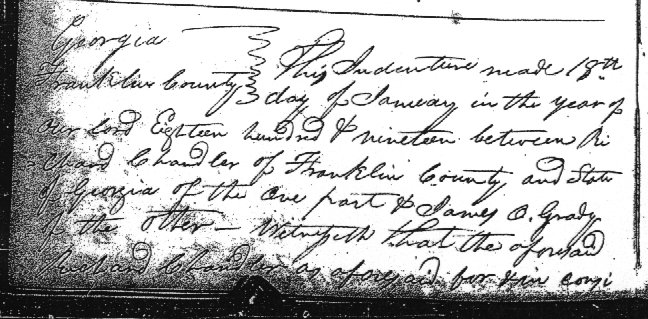 Georgia
Franklin County } This Indenture made 18th
day of January in the year of
our Lord Eighteen hundred & nineteen between Ri
chard Chandler of Franklin County and State
of Georgia of the one part & James O. Grady
of the other – Witnesseth that the aforesaid
Richard Chandler as aforesaid for & in consi